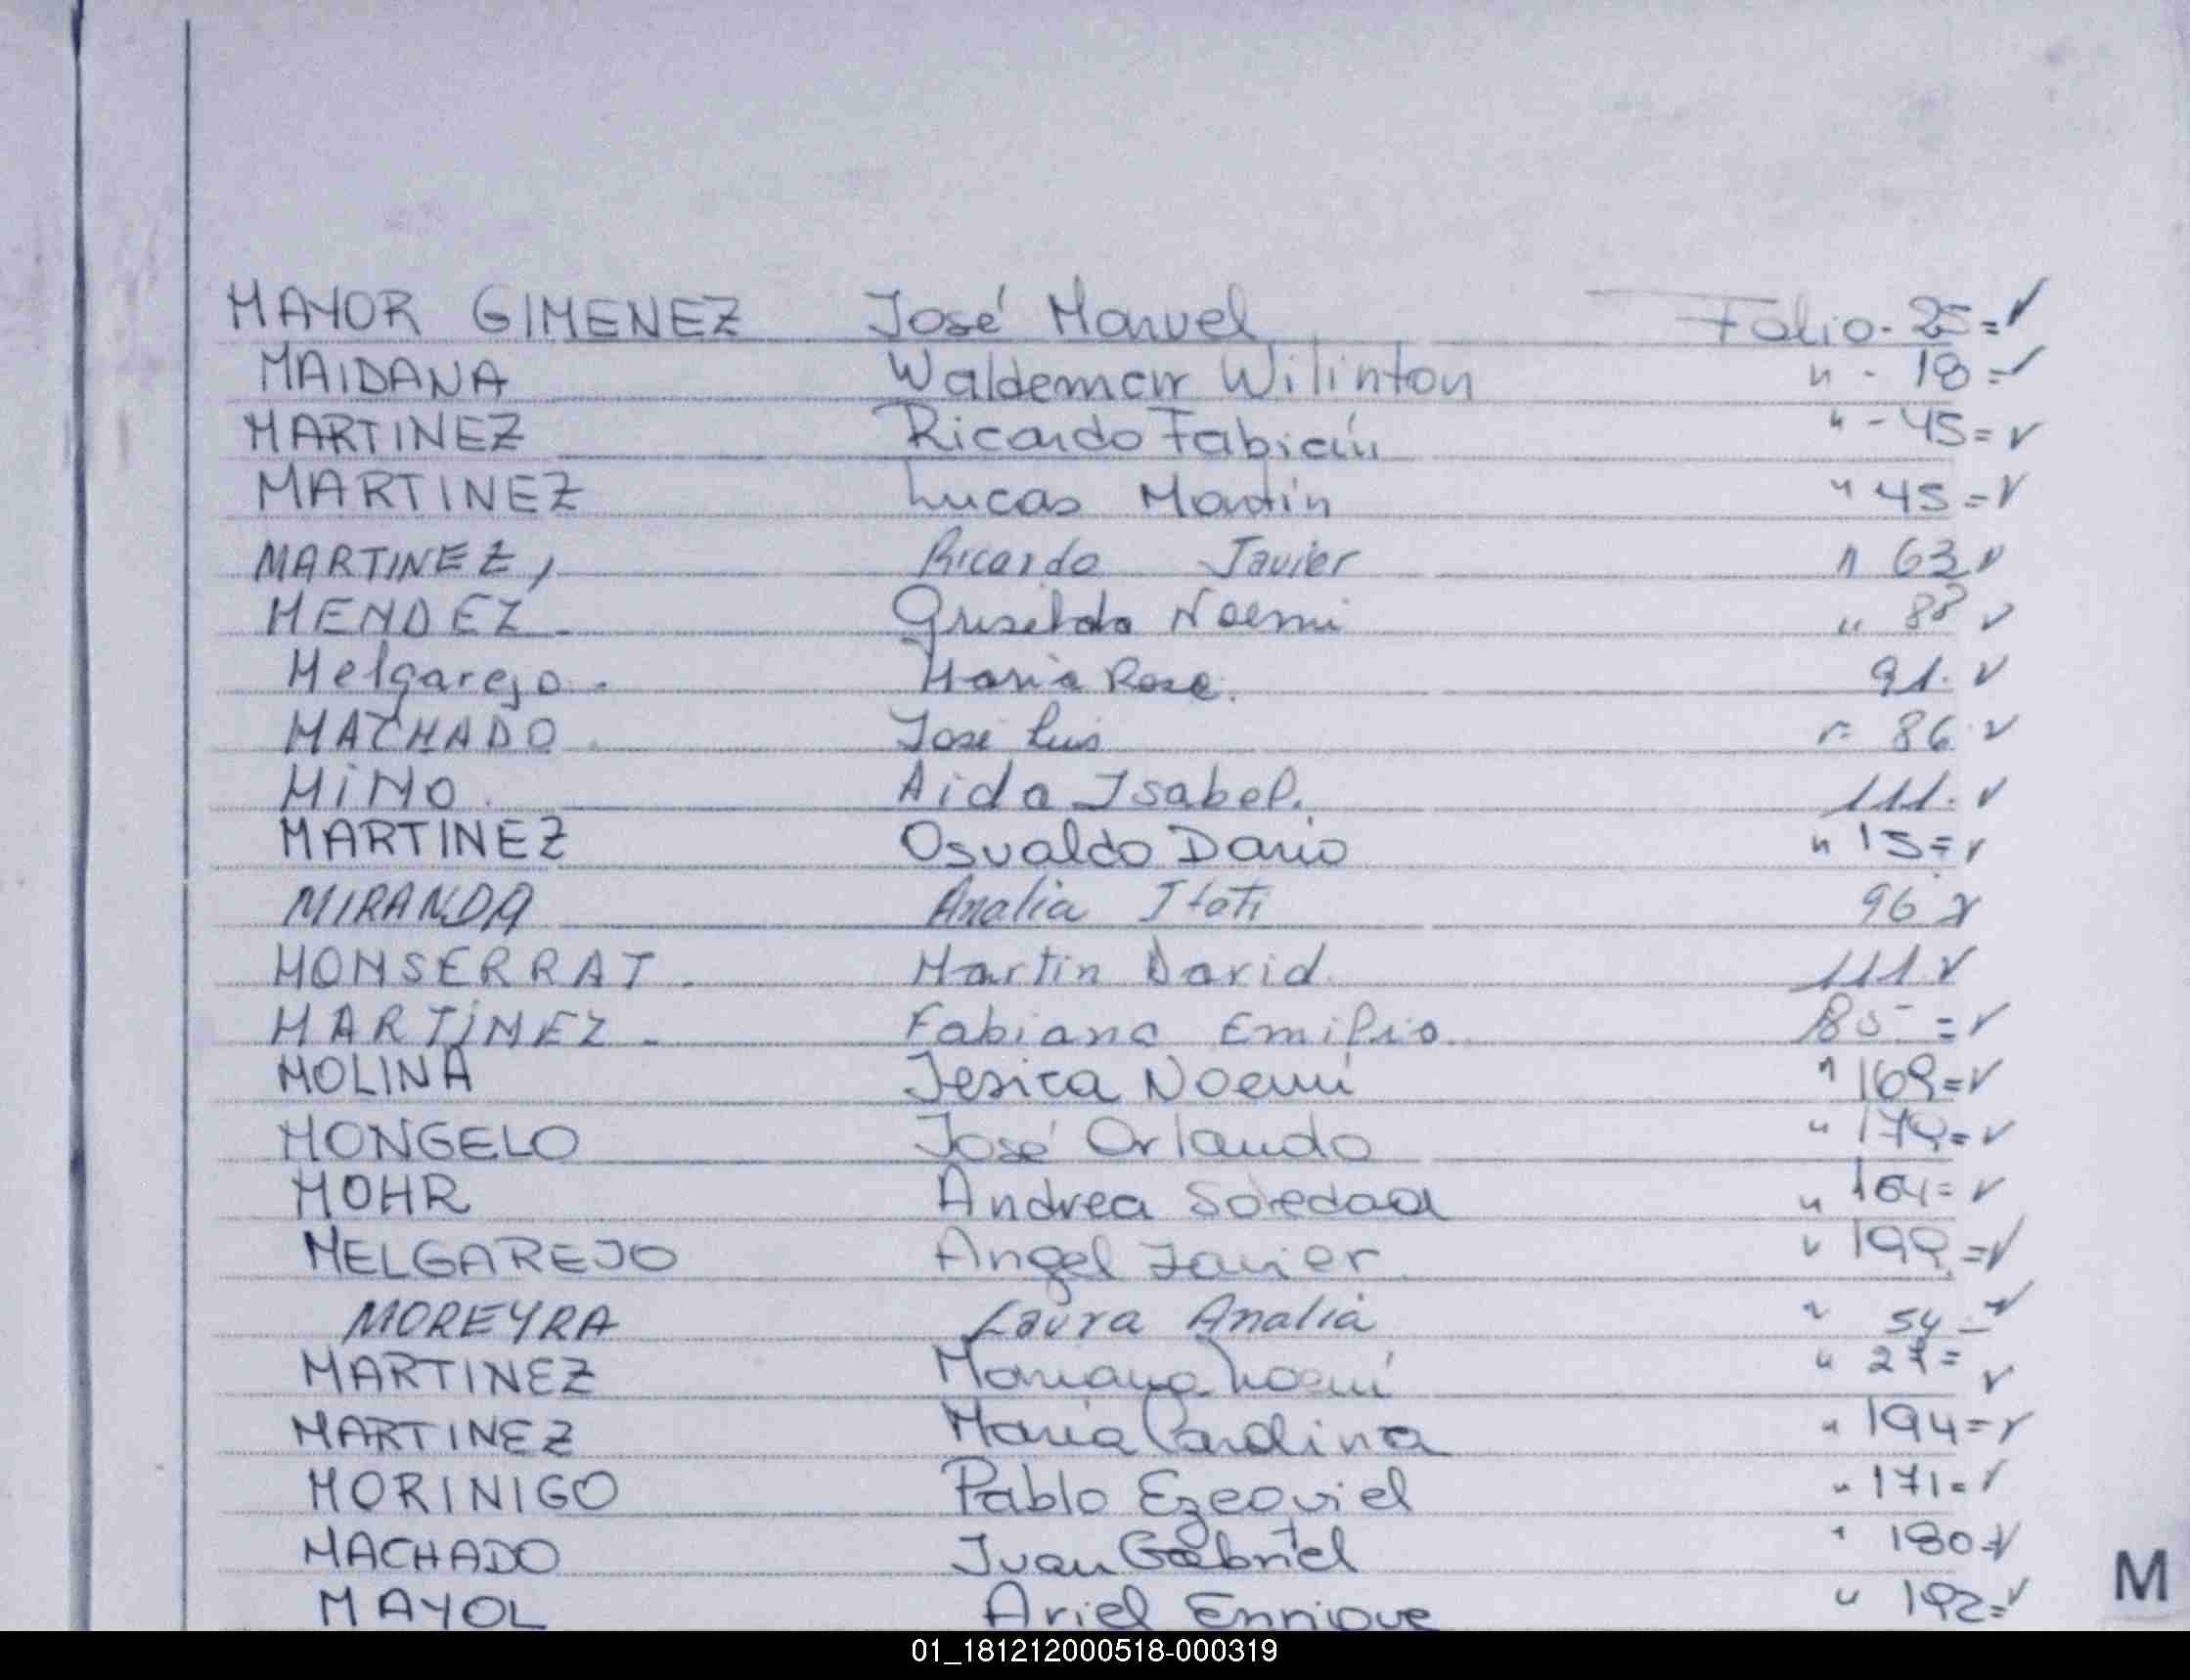 MAYOR GIMENEZ José Manuel Folio - 25 = ✓
MAIDANA Waldemar Wilinton " - 18 = ✓
MARTINEZ Ricardo Fabián " - 45 = ✓
MARTINEZ Lucas Martín " 45 = ✓
MARTINEZ, Ricardo Javier " 63 ✓
MENDEZ Griselda Noemi " 88 ✓
Melgarejo. Maria Rosa. 91. ✓
MACHADO José Luis " 86. ✓
MiÑO. Aida Isabel. 111. ✓
MARTINEZ Osvaldo Dario " 15 = ✓
MIRANDA Analia Itati 96 ✓
MONSERRAT. Martin David. 111 ✓
MARTiNEZ - Fabiana Emilio. 85 = ✓
MOLINA Jesica Noemí " 169 = ✓
MONGELO José Orlando " 179 = ✓
MOHR Andrea Soledad " 164 = ✓
MELGAREJO Angel Javier " 199 = ✓
MOREYRA Laura Analia " 54 = ✓
MARTINEZ Mariana Noemí " 27 = ✓
MARTINEZ María Carolina " 194 = ✓
MORINIGO Pablo Ezequiel " 171 = ✓
MACHADO Juan Gabriel " 180 = ✓
MAYOL Ariel Enrrique " 192 = ✓
M
01_181212000518-000319